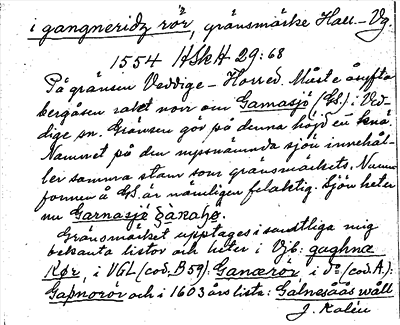 i gangneridz rör, gränsmärke Hall.–Vg.
1554 HSkH 29:68
På gränsen Veddige – Horred. Måste åsyfta
bergåsen rakt norr om Gamasjö (GS.) i Ved-
dige sn. Gränsen gör på denna höjd en knä.
Namnet på den nyssnämnda sjön innehål-
ler samma stam som gränsmärkets. Namn
formen å GS. är nämligen felaktig. Sjön heter
nu Garnasjö
Gränsmärket upptages i samtliga mig
bekanta listor och heter i Vjb: gaghnæ
Rør, i VGL (cod. B 59): Ganærör i d:o (cod. A):
Gapnorör och i 1603 års lista: Galneåås wall
J. Kalén